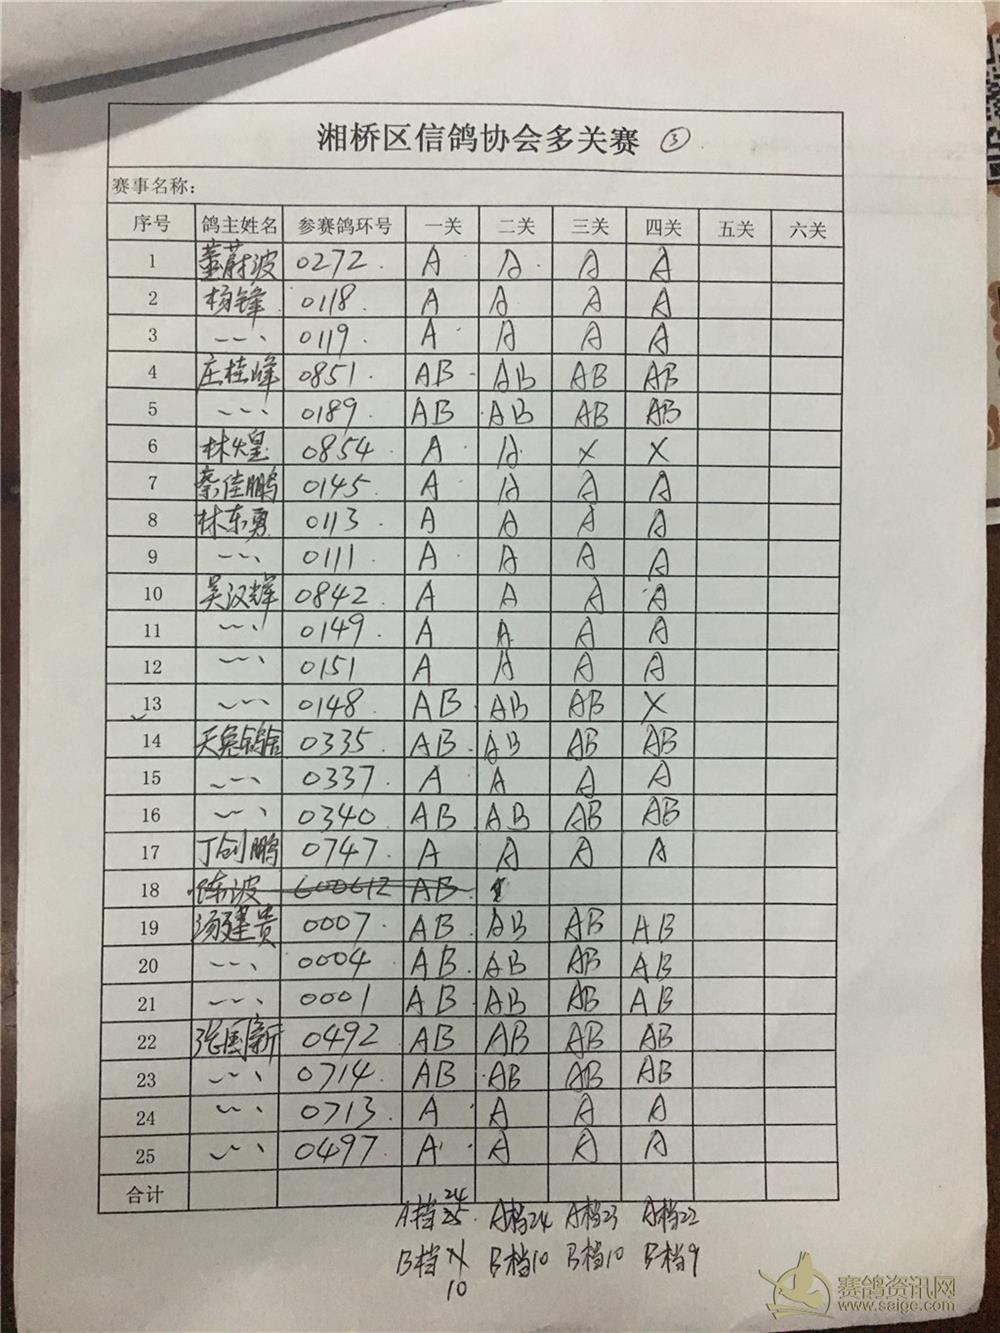 湘桥区信鸽协会多关赛 ③
赛事名称:
序号 鸽主姓名 参赛鸽环号 一关 二关 三关 四关 五关 六关
1 董蔚波 0272 A A A A
2 杨锋 0118 A A A A
3 〃 0119 A A A A
4 庄桂峰 0851 AB AB AB AB
5 〃 0189 AB AB AB AB
6 林煌 0854 A A X X
7 蔡佳鹏 0145 A A A A
8 林东勇 0113 A A A A
9 〃 0111 A A A A
10 吴汉辉 0842 A A A A
11 〃 0149 A A A A
12 〃 0151 A A A A
13 〃 0148 AB AB AB X
14 天兔鸽舍 0335 AB AB AB AB
15 〃 0337 A A A A
16 〃 0340 AB AB AB AB
17 丁创鹏 0747 A A A A
18 陈波 600612 AB
19 汤建贵 0007 AB AB AB AB
20 〃 0004 AB AB AB AB
21 〃 0001 AB AB AB AB
22 张国新 0492 AB AB AB AB
23 〃 0714 AB AB AB AB
24 〃 0713 A A A A
25 〃 0497 A A A A
合计
24
A档25 A档24 A档23 A档22
B档11 B档10 B档10 B档9
10
赛鸽资讯网
www.saige.com